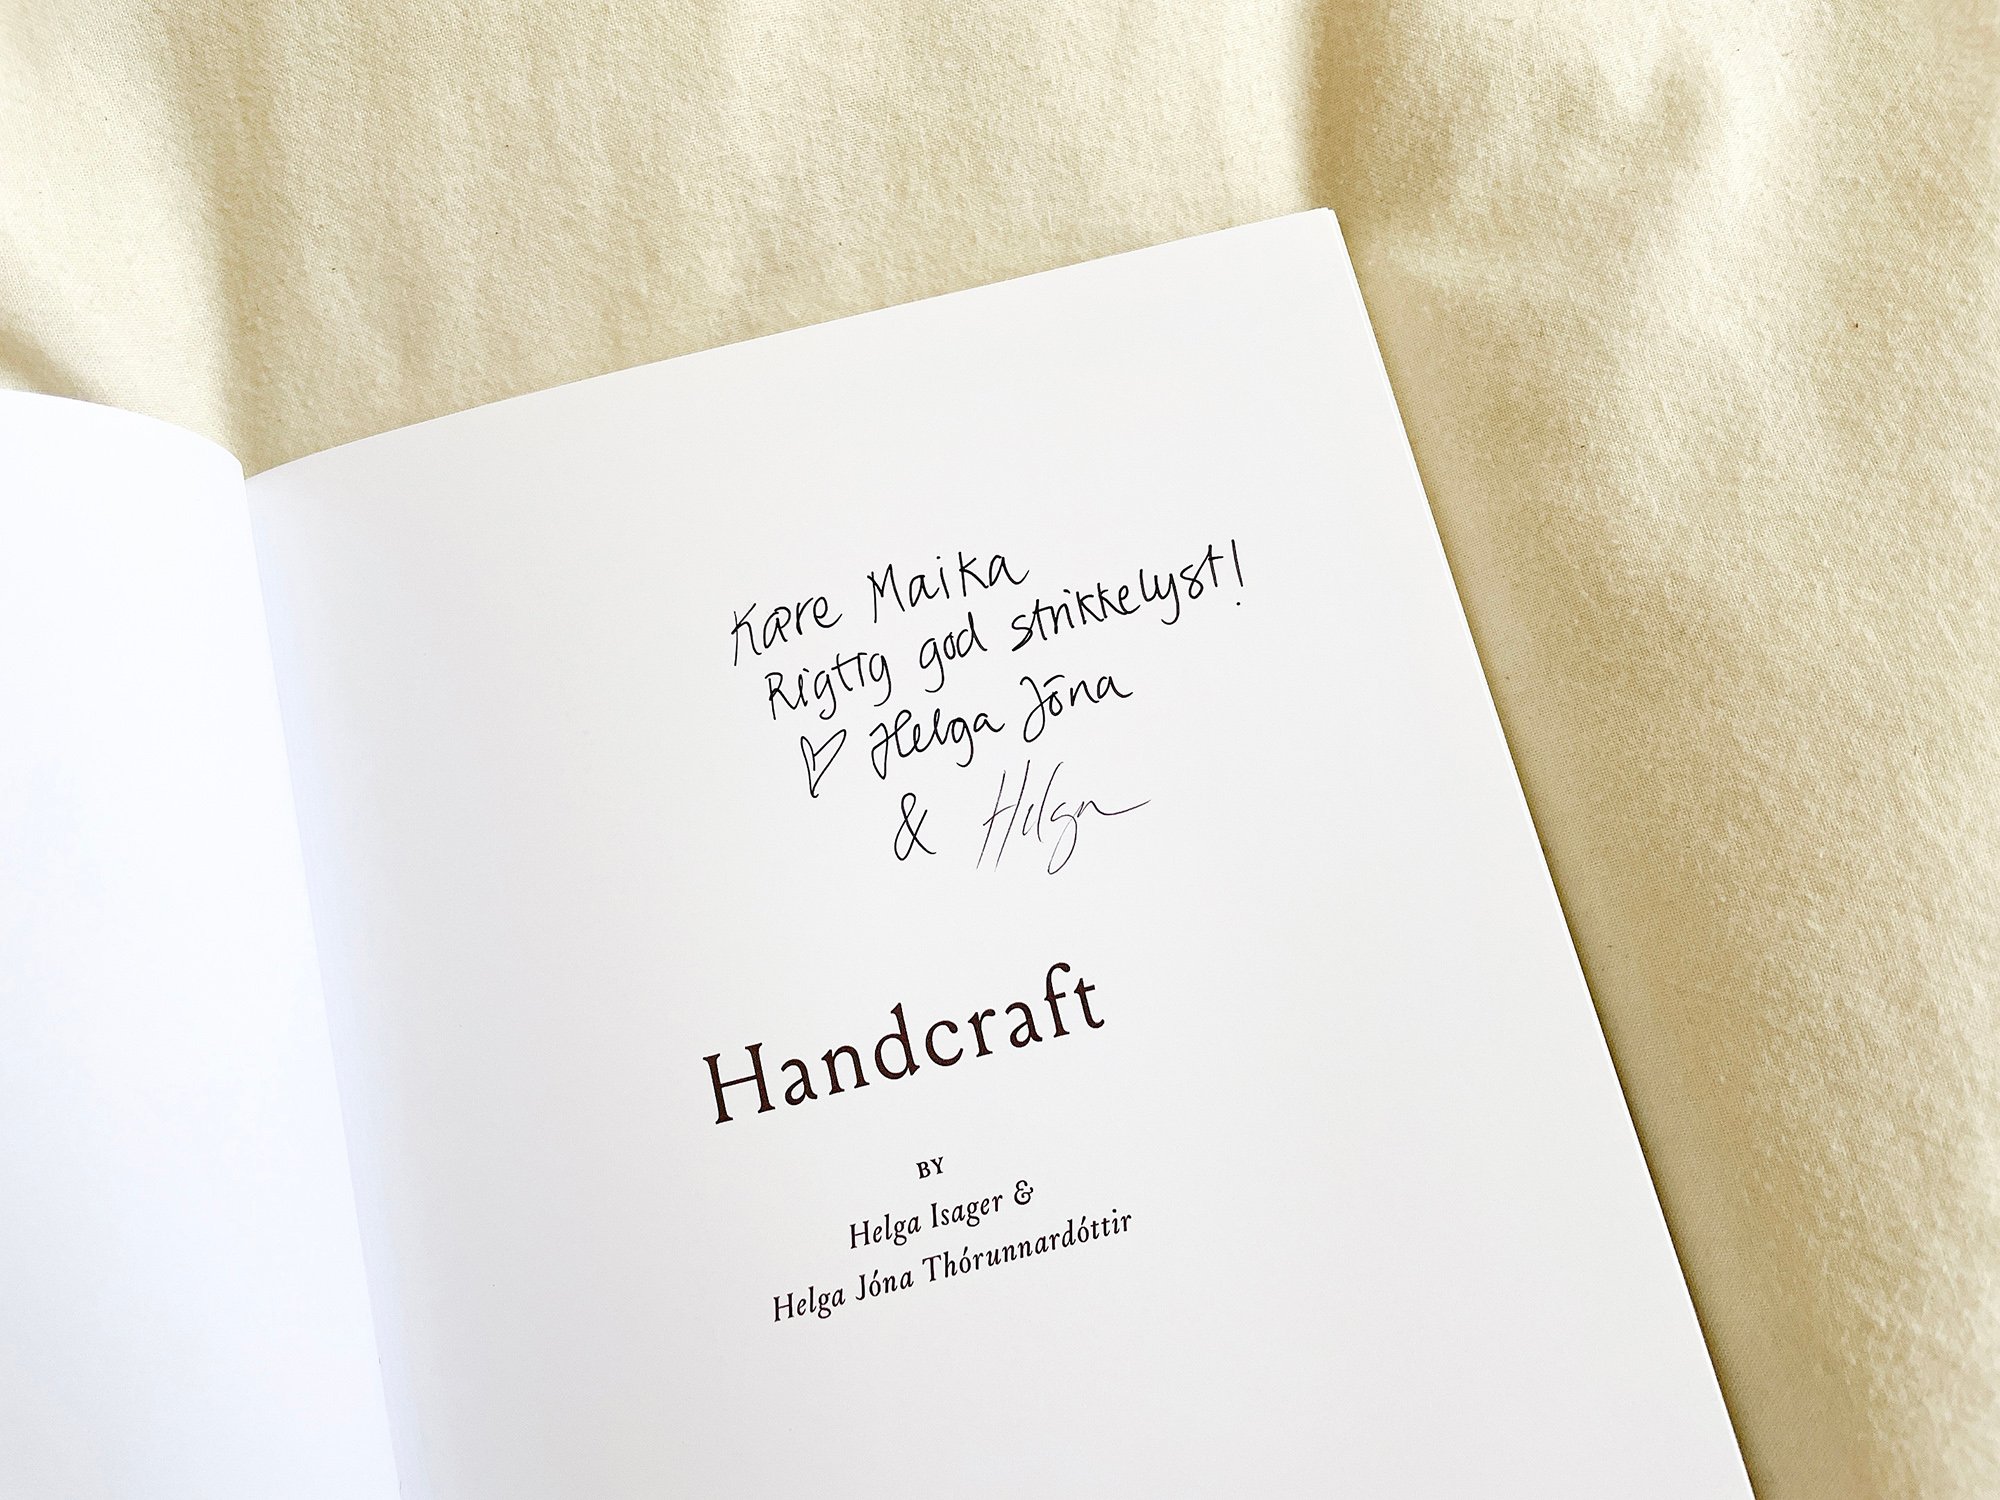 Kære Maika
Rigtig god strikkelyst!
♡ Helga Jóna
& Helga
Handcraft
BY
Helga Isager &
Helga Jóna Thórunnardóttir